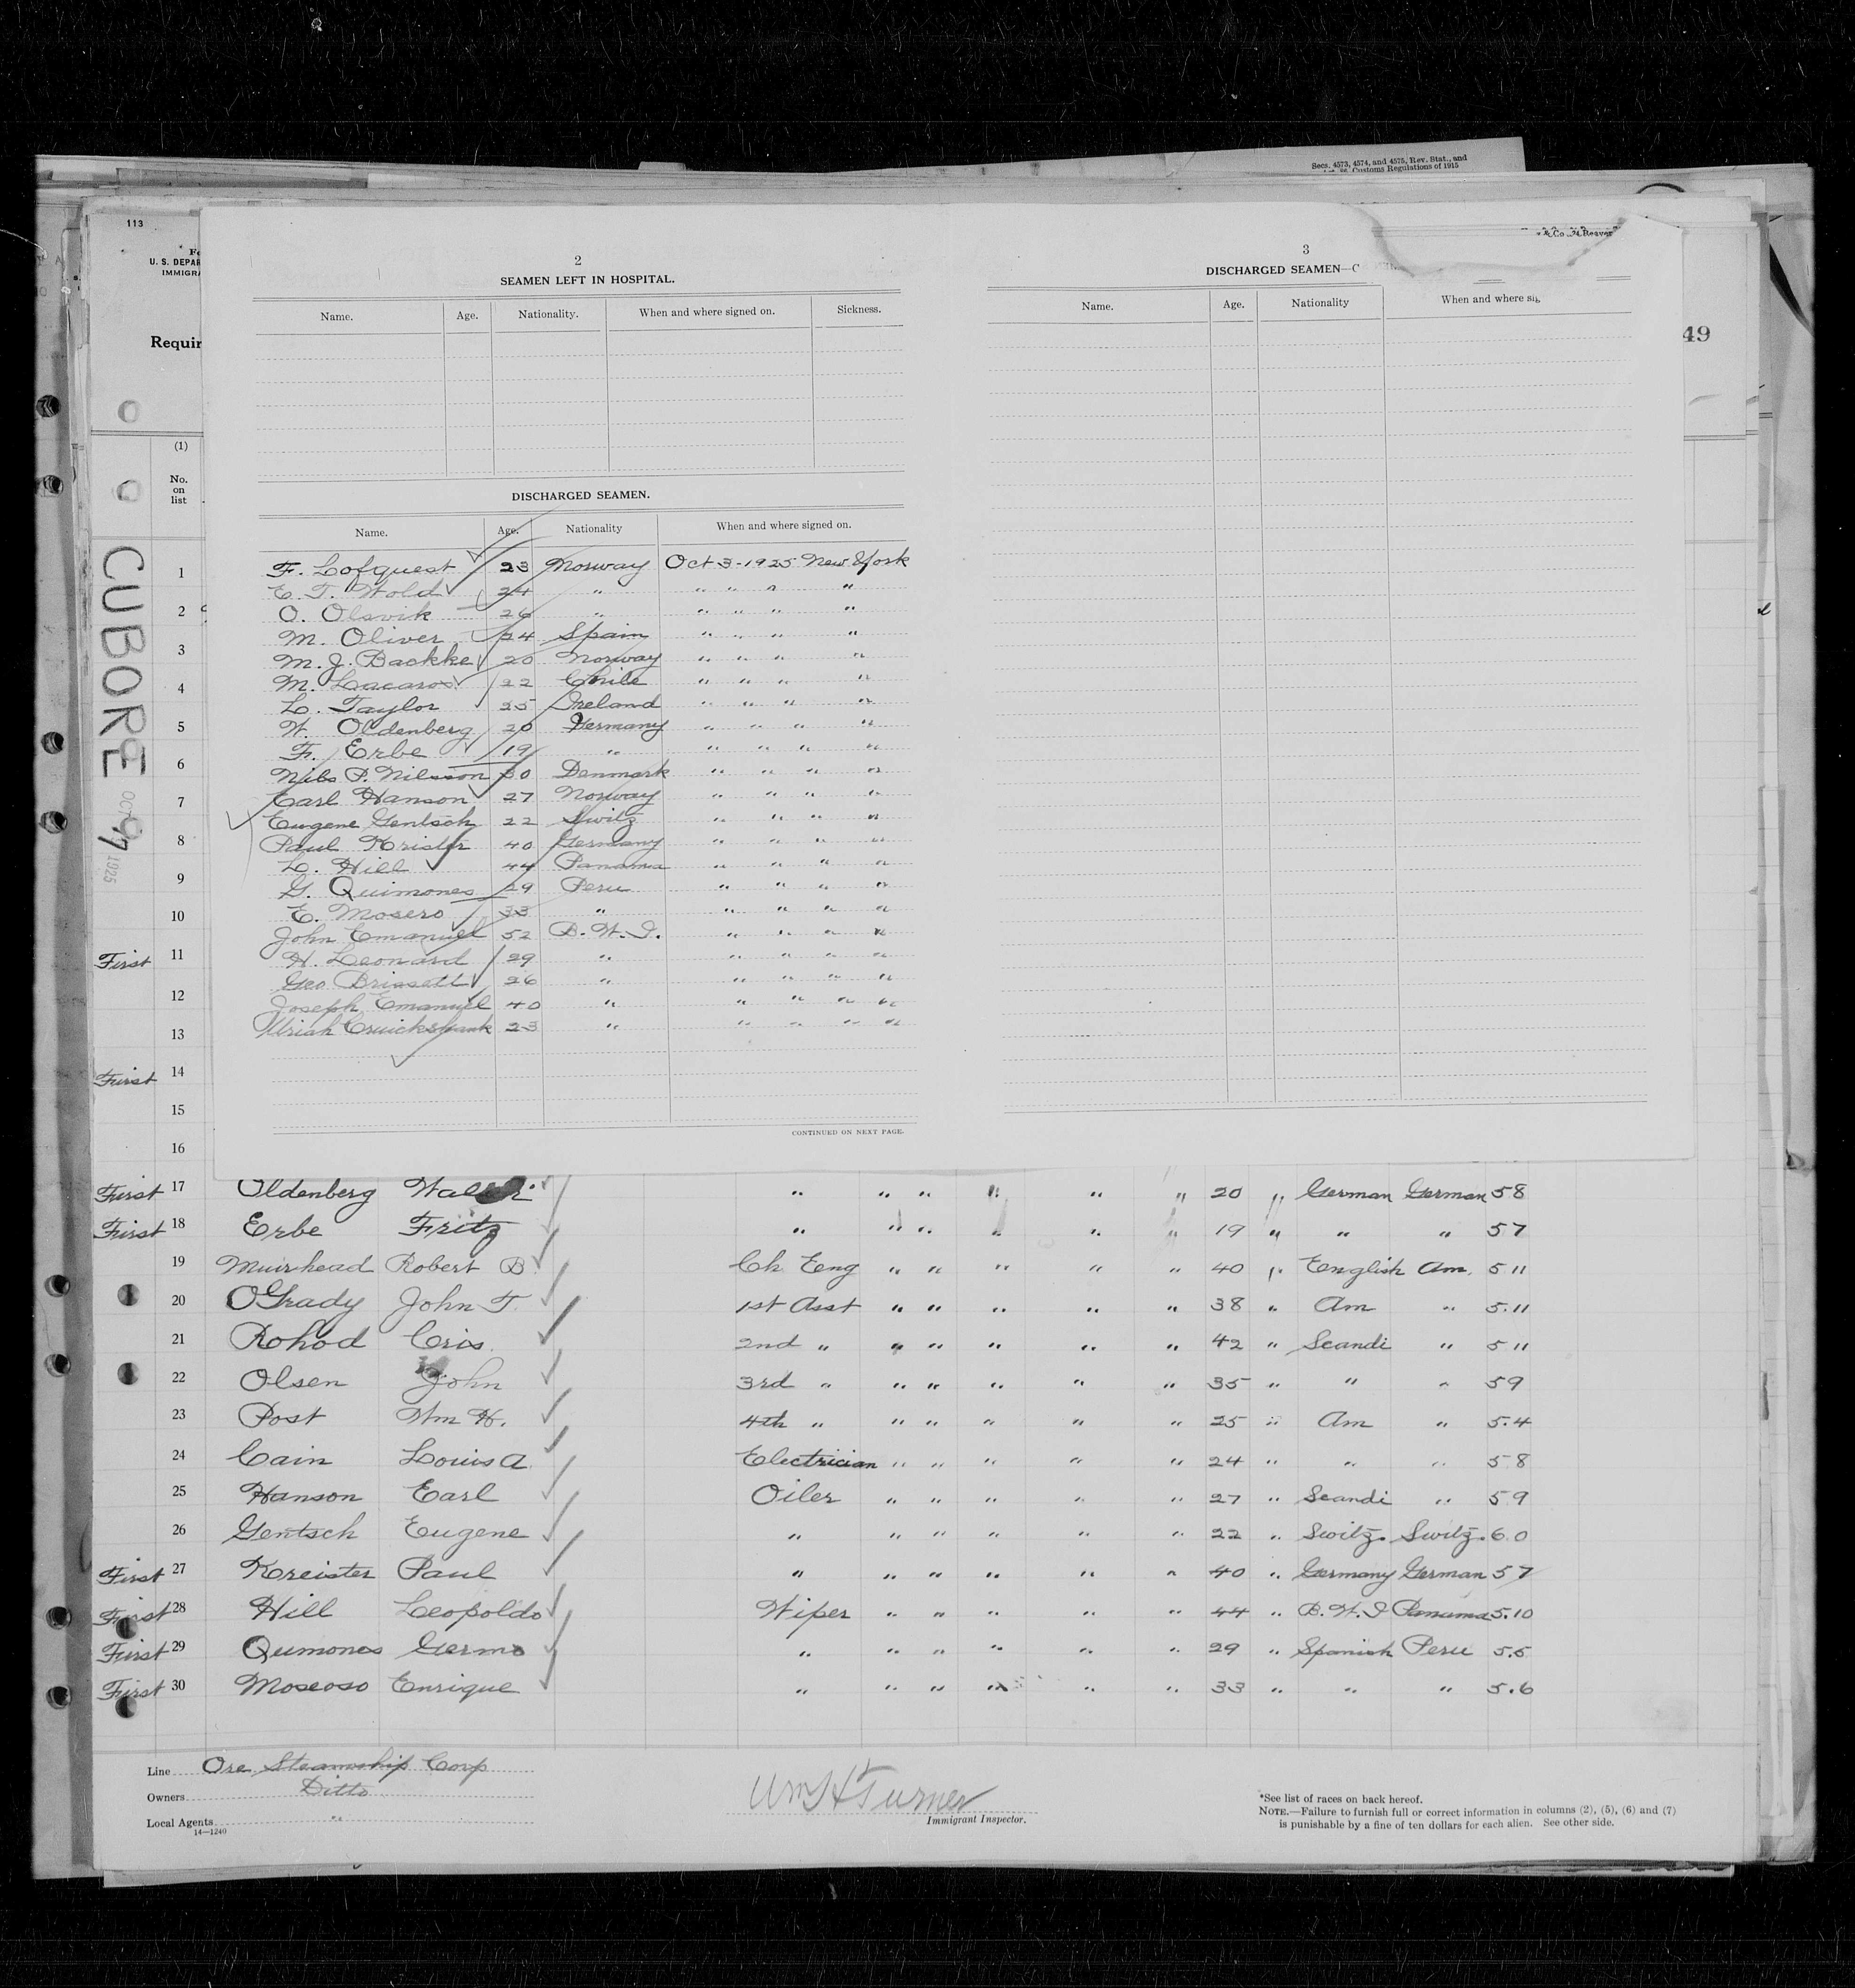 Secs. 4573, 4574, and 4575, Rev. Stat., and
Customs Regulations of 1915
113
U. S. DEPAR
IMMIGRA
Requir
49
& Co. 74 Reaver
2
SEAMEN LEFT IN HOSPITAL.
Name. Age. Nationality. When and where signed on. Sickness.
DISCHARGED SEAMEN.
Name. Age. Nationality When and where signed on.
F. Lofquest 23 Norway Oct 3-1925 New York
E. T. Wold 24 " " " " "
O. Olsvik 26 " " " " "
M. Oliver 24 Spain " " " "
M. J. Backke 20 Norway " " " "
M. Lacaros 22 Chile " " " "
L. Taylor 25 Ireland " " " "
W. Oldenberg 20 Germany " " " "
F. Erbe 19 " " " " "
Nils P. Nilsson 30 Denmark " " " "
Earl Hanson 27 Norway " " " "
Eugene Gentsch 22 Switz " " " "
Paul Krister 40 Germany " " " "
L. Hill 44 Panama " " " "
G. Quimones 29 Peru " " " "
E. Mosero 33 " " " " "
John Emanuel 52 B. W. I. " " " "
H. Leonard 29 " " " " "
Geo Brissett 26 " " " " "
Joseph Emanuel 40 " " " " "
Uriah Cruickshank 23 " " " " "
CONTINUED ON NEXT PAGE.
3
DISCHARGED SEAMEN—C
Name. Age. Nationality When and where sig
(1)
No.
on
list
CUBORE
OCT 1925
1
2
3
4
5
6
7
8
9
10
First 11
12
13
First 14
15
16
First 17 Oldenberg " " " " " " 20 " German German 58
First 18 Erbe Fritz " " " " " " 19 " " " 57
19 Muirhead Robert B. Ch Eng " " " " " 40 " English Am. 5 11
20 OGrady John T. 1st Asst " " " " " 38 " Am " 5.11
21 Rohod Cris. 2nd " " " " " " 42 " Scandi " 5 11
22 Olsen John 3rd " " " " " " 35 " " " 59
23 Post Wm H. 4th " " " " " " 25 " Am " 5.4
24 Cain Louis A. Electrician " " " " " 24 " " " 58
25 Hanson Earl Oiler " " " " " 27 " Scandi " 59
26 Gentsch Eugene " " " " " " 22 " Switz. Switz. 6.0
First 27 Kreister Paul " " " " " " 40 " Germany German 57
First 28 Hill Leopoldo Wiper " " " " " 44 " B. W. I Panama 5.10
First 29 Qumones Germo " " " " " " 29 " Spanish Peru 5.5
First 30 Moscoso Enrique " " " " " " 33 " " " 5.6
Line Ore Steamship Corp
Owners Ditto
Local Agents "
14—1240
Wm H Turner
Immigrant Inspector.
*See list of races on back hereof.
NOTE.—Failure to furnish full or correct information in columns (2), (5), (6) and (7)
is punishable by a fine of ten dollars for each alien. See other side.